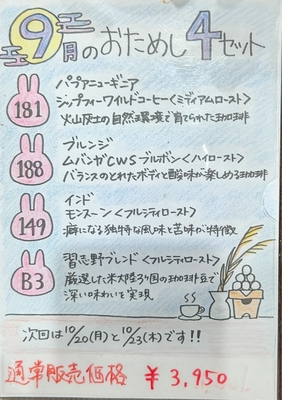 9月のおためし4セット
181
パプアニューギニア
ジップフィーワイルドコーヒー<ミディアムロースト>
火山灰土の自然環境で育てられた珈琲
188
ブルンジ
ムバンガCWSブルボン<ハイロースト>
バランスのとれたボディと酸味が楽しめる珈琲
149
インド
モンスーン<フルシティロースト>
癖になる独特な風味と苦味が特徴
B3
習志野ブレンド<フルシティロースト>
厳選した米大陸3ヶ国の珈琲豆で
深い味わいを実現
次回は10/20(月)と10/23(木)です!!
通常販売価格 ¥3,950